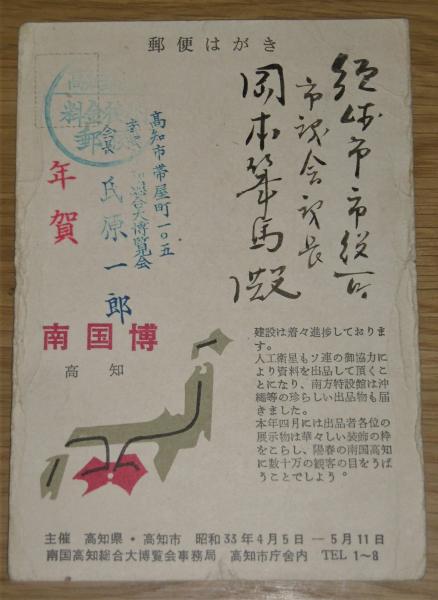 郵便はがき
須崎市市役所
市議会議長
岡本
馬殿
高知市帯屋町一〇五
合大博覧会
会長
氏原一郎
料金
郵
年賀
南国博
高知
建設は着々進捗しておりま
す。
人工衛星もソ連の御協力に
より資料を出品して頂くこ
とになり、南方特設館は沖
縄等の珍らしい出品物も届
きました。
本年四月には出品者各位の
展示物は華々しい装飾の粋
をこらし、陽春の南国高知
に数十万の観客の目をうば
うことでしよう。
主催 高知県・高知市 昭和33年4月5日―5月11日
南国高知総合大博覧会事務局 高知市庁舎内 TEL 1~8